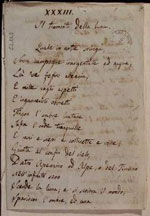 XXXIII.
Il tramonto della luna.
Quale in notte solinga,
Sovra campagne inargentate ed acque,
Là 've zefiro aleggia,
E mille vaghi aspetti
E ingannevoli obbietti
Fingon l'ombre lontane
Infra l'onde tranquille
E rami e siepi e collinette e ville;
Giunta al confin del cielo,
Dietro Apennino od Alpe, o del Tirreno
Nell'infinito seno
Scende la luna; e si scolora il mondo;
Spariscon l'ombre, ed una